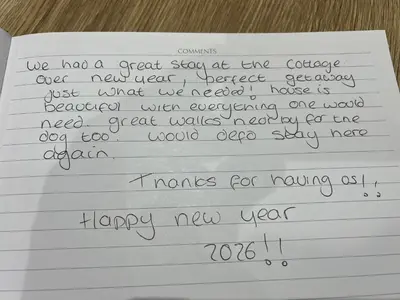 COMMENTS
we had a great stay at the cottage
over new year, perfect getaway
just what we needed! house is
beautiful with everything one would
need. great walks nearby for the
dog too. would defo stay here
again.
Thanks for having us!!
Happy new year
2026!!